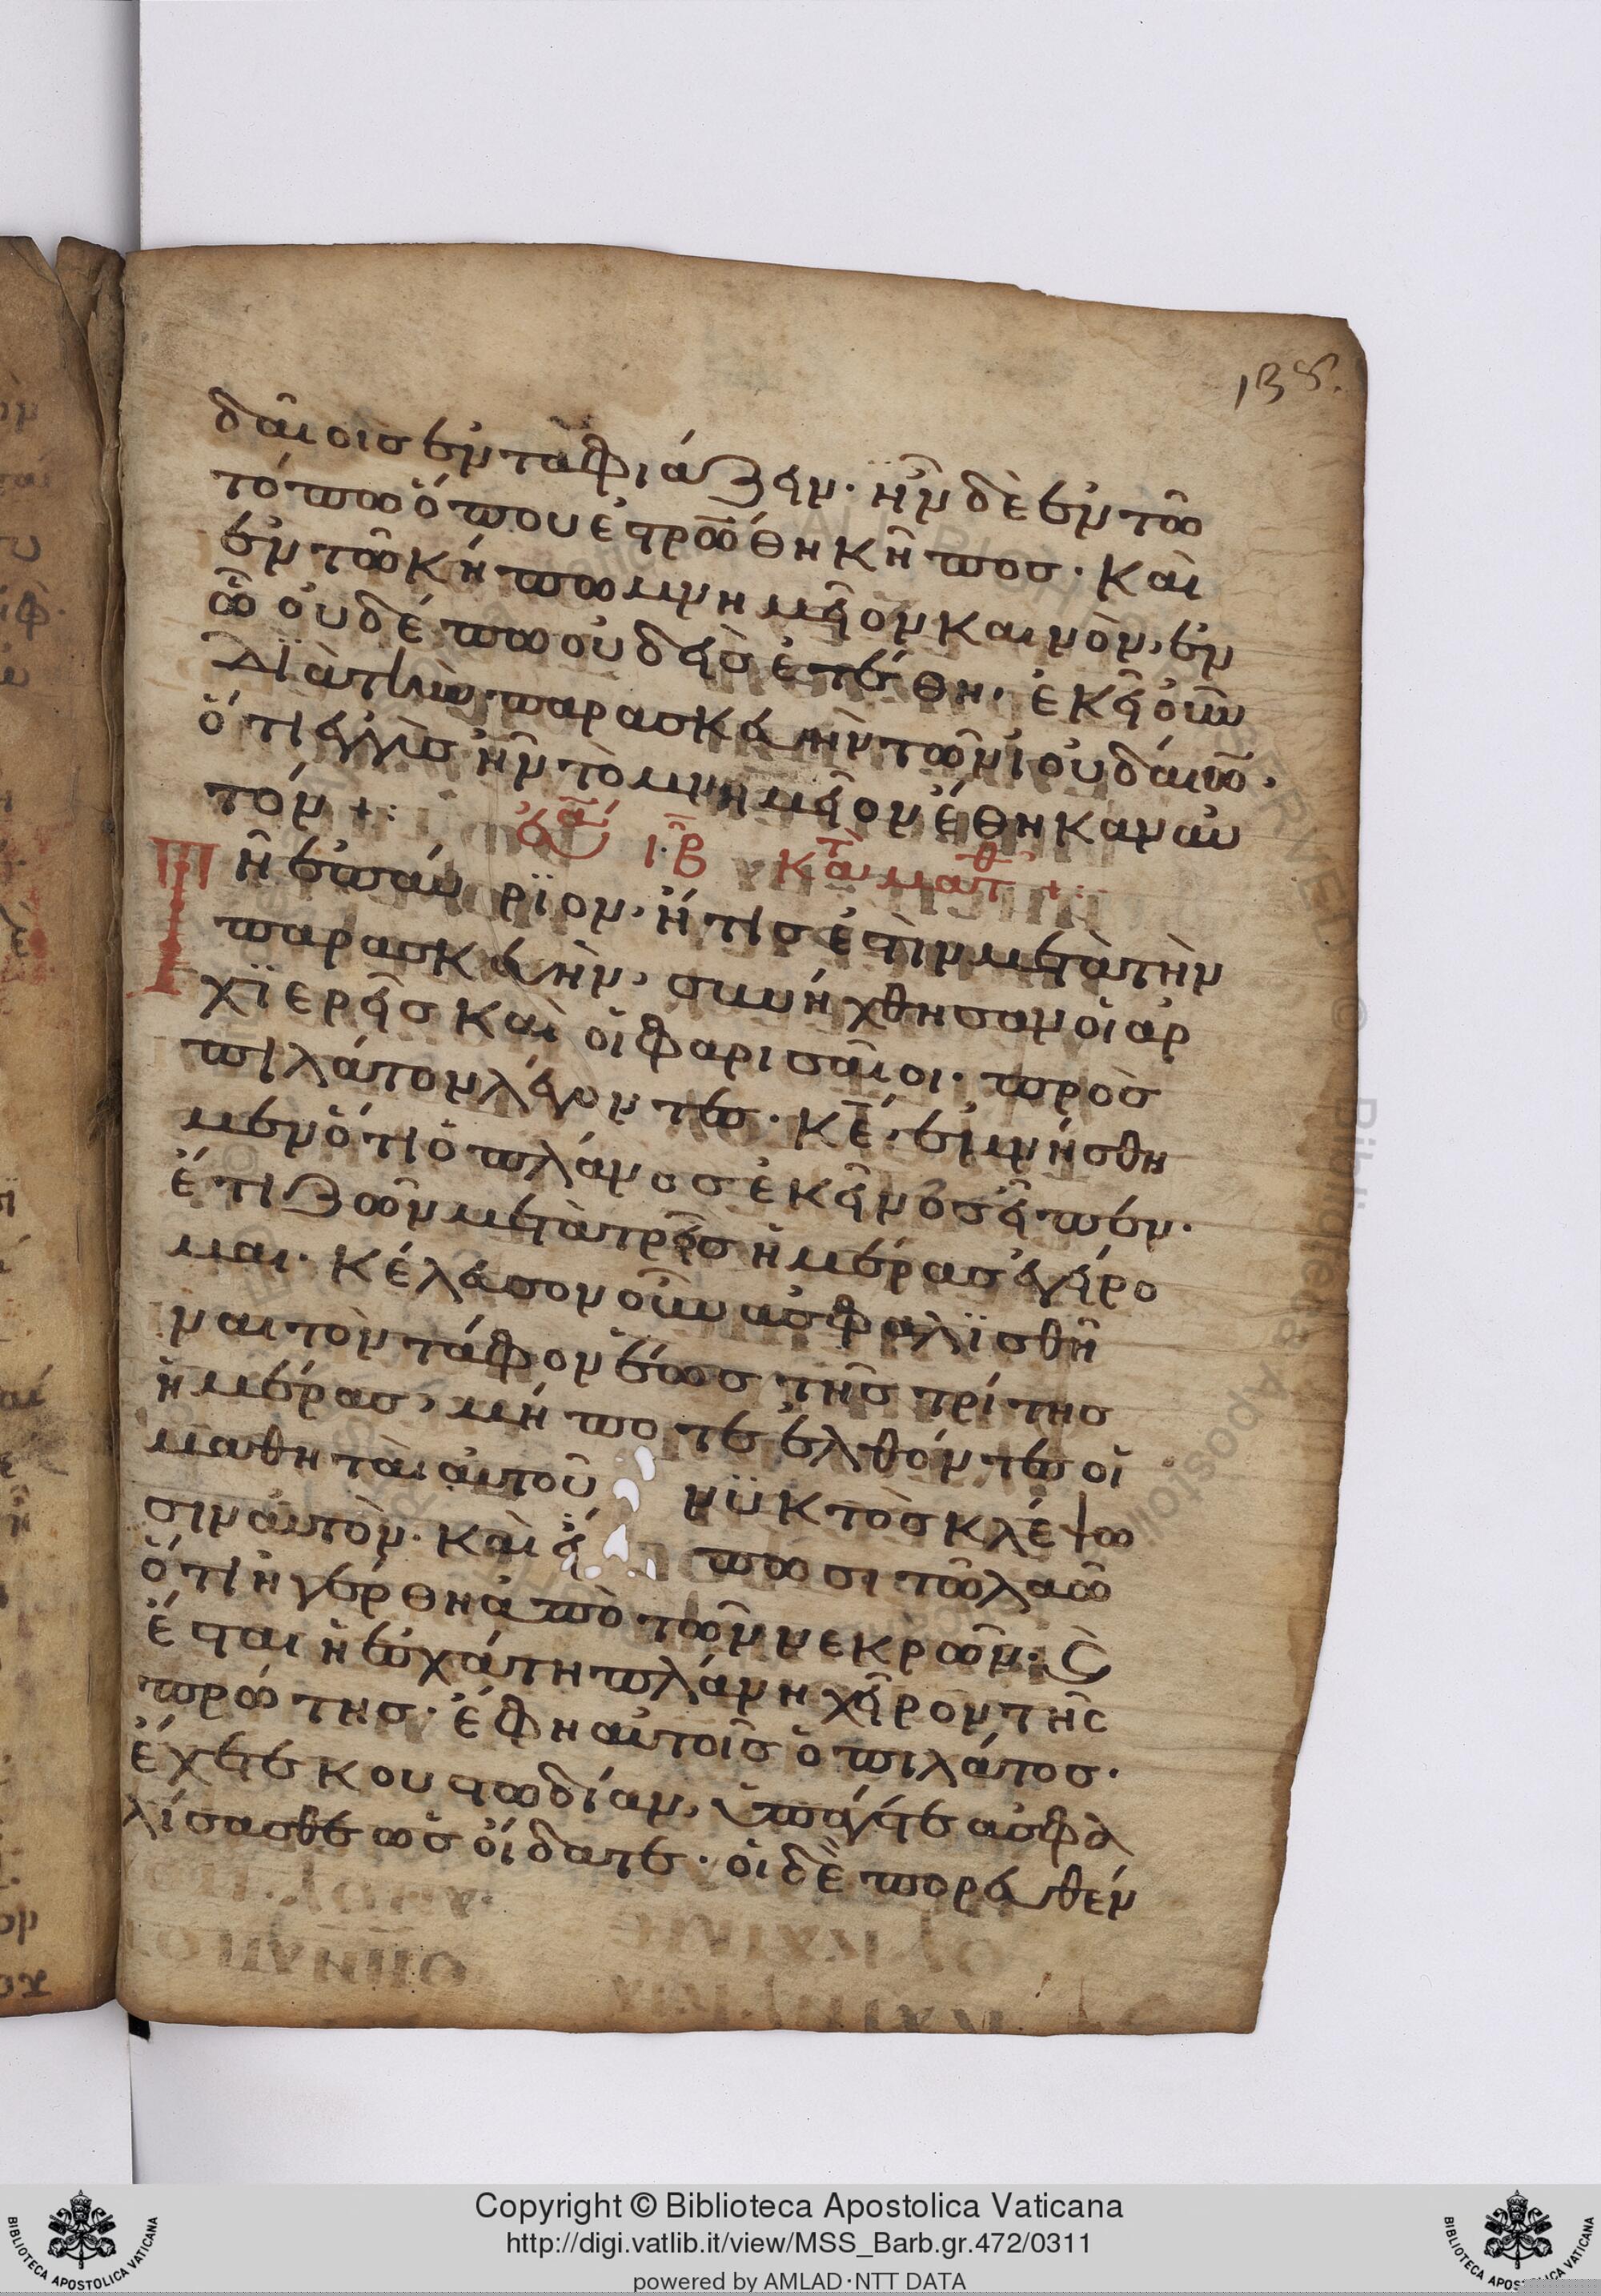 138.
δαίοις ἐνταφιάζειν· ἦν δὲ ἐν τῶ
τόπω ὅπου ἐστρώθη κῆπος· καὶ
ἐν τῶ κήπω μνημεῖον καινὸν, ἐν
ὧ οὐδέπω οὐδεὶς ἐτέθη· ἐκεῖ οὖν
διὰ τὴν παρασκευὴν τῶν ἰουδαίων,
ὅτι ἐγγὺς ἦν τὸ μνημεῖον ἔθηκαν αὐ
τόν +:
εὐα ιβ κατὰ ματθ +:
Τῆ ἐπαύριον, ἥτις ἐστὶν μετὰ τὴν
παρασκευὴν, συνήχθησαν οἱ ἀρ
χϊερεῖς καὶ οἱ φαρισαῖοι· πρὸς
πιλάτον λέγοντες· κε, ἐμνήσθη
μεν ὅτι ὁ πλάνος ἐκεῖνος εἶπεν·
ἔτι ζῶν μετὰ τρεῖς ἡμέρας ἐγείρο
μαι· κέλευσον οὖν ἀσφαλϊσθῆ
ναι τὸν τάφον ἕως τῆς τρίτης
ἡμέρας, μήποτε ἐλθόντες οἱ
μαθηταὶ αὐτοῦ νϋκτὸς κλέψω
σιν αὐτὸν· καὶ εἴ πωσι τῶ λαῶ
ὅτι ἠγέρθη ἀπὸ τῶν νεκρῶν· ϛ
ἔσται ἡ ἐσχάτη πλάνη χεῖρον τῆς
πρώτης· ἔφη αὐτοῖς ὁ πιλάτος·
ἔχετε κουστωδίαν, ὑπάγετε ἀσφα
λίσασθε ὡς οἴδατε· οἱ δὲ πορευθέν
Copyright © Biblioteca Apostolica Vaticana
http://digi.vatlib.it/view/MSS_Barb.gr.472/0311
powered by AMLAD·NTT DATA
BIBLIOTECA APOSTOLICA VATICANA
BIBLIOTECA APOSTOLICA VATICANA